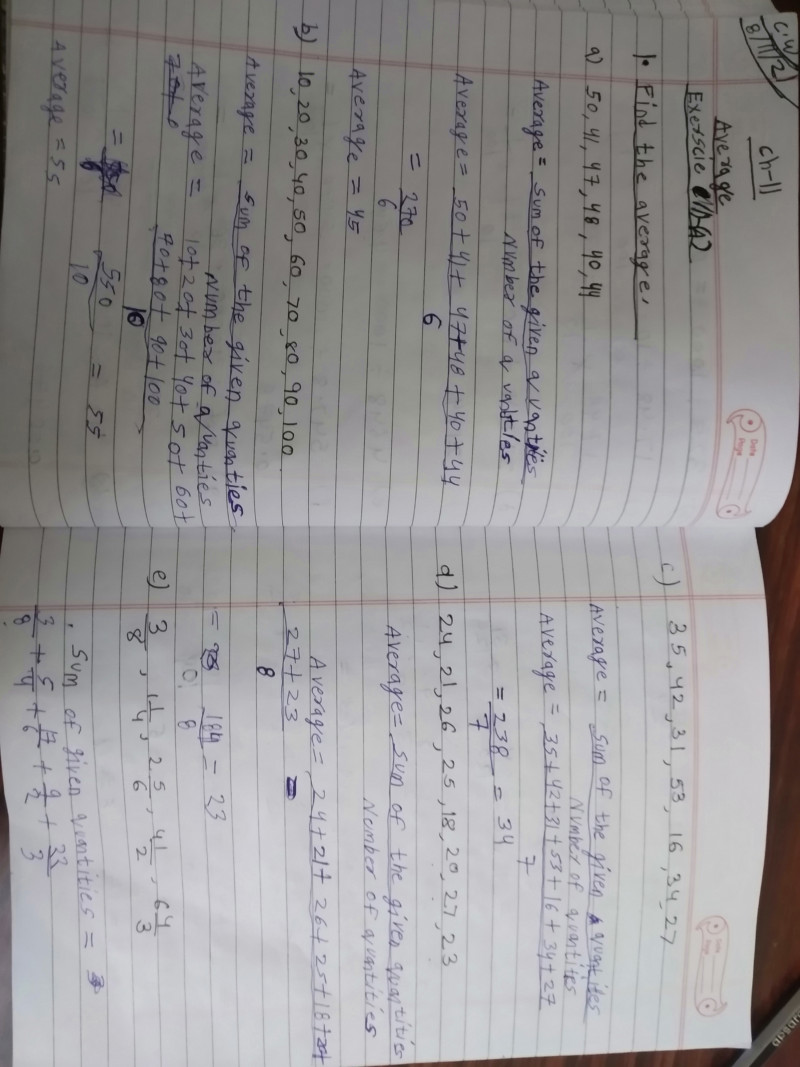 C.W
8/11/21
Ch-11
Average
Exerscie 11A2
1. Find the average.
a) 50, 41, 47, 48, 40, 44
Average = Sum of the given quantities
Number of quantities
Average = 50 + 41 + 47 + 48 + 40 + 44
6
= 270
6
Average = 45
b) 10, 20, 30, 40, 50, 60, 70, 80, 90, 100
Average = Sum of the given quantities
Number of quanties
Average = 10 + 20 + 30 + 40 + 50 + 60 +
70 + 80 + 90 + 100
10
= 550 = 55
10
Average = 55
Date
Page
c) 35, 42, 31, 53, 16, 34, 27
Average = Sum of the given quantities
Number of quantities
Average = 35 + 42 + 31 + 53 + 16 + 34 + 27
7
= 238 = 34
7
d) 24, 21, 26, 25, 18, 20, 27, 23
Average = Sum of the given quantities
Number of quantities
Average = 24 + 21 + 26 + 25 + 18 + 20 +
27 + 23
8
= 184 = 23
8
e) 3/8, 1 1/4, 2 5/6, 4 1/2, 6 4/3
Sum of given quantities =
3/8 + 5/4 + 17/6 + 9/2 + 23/3
Date
Page